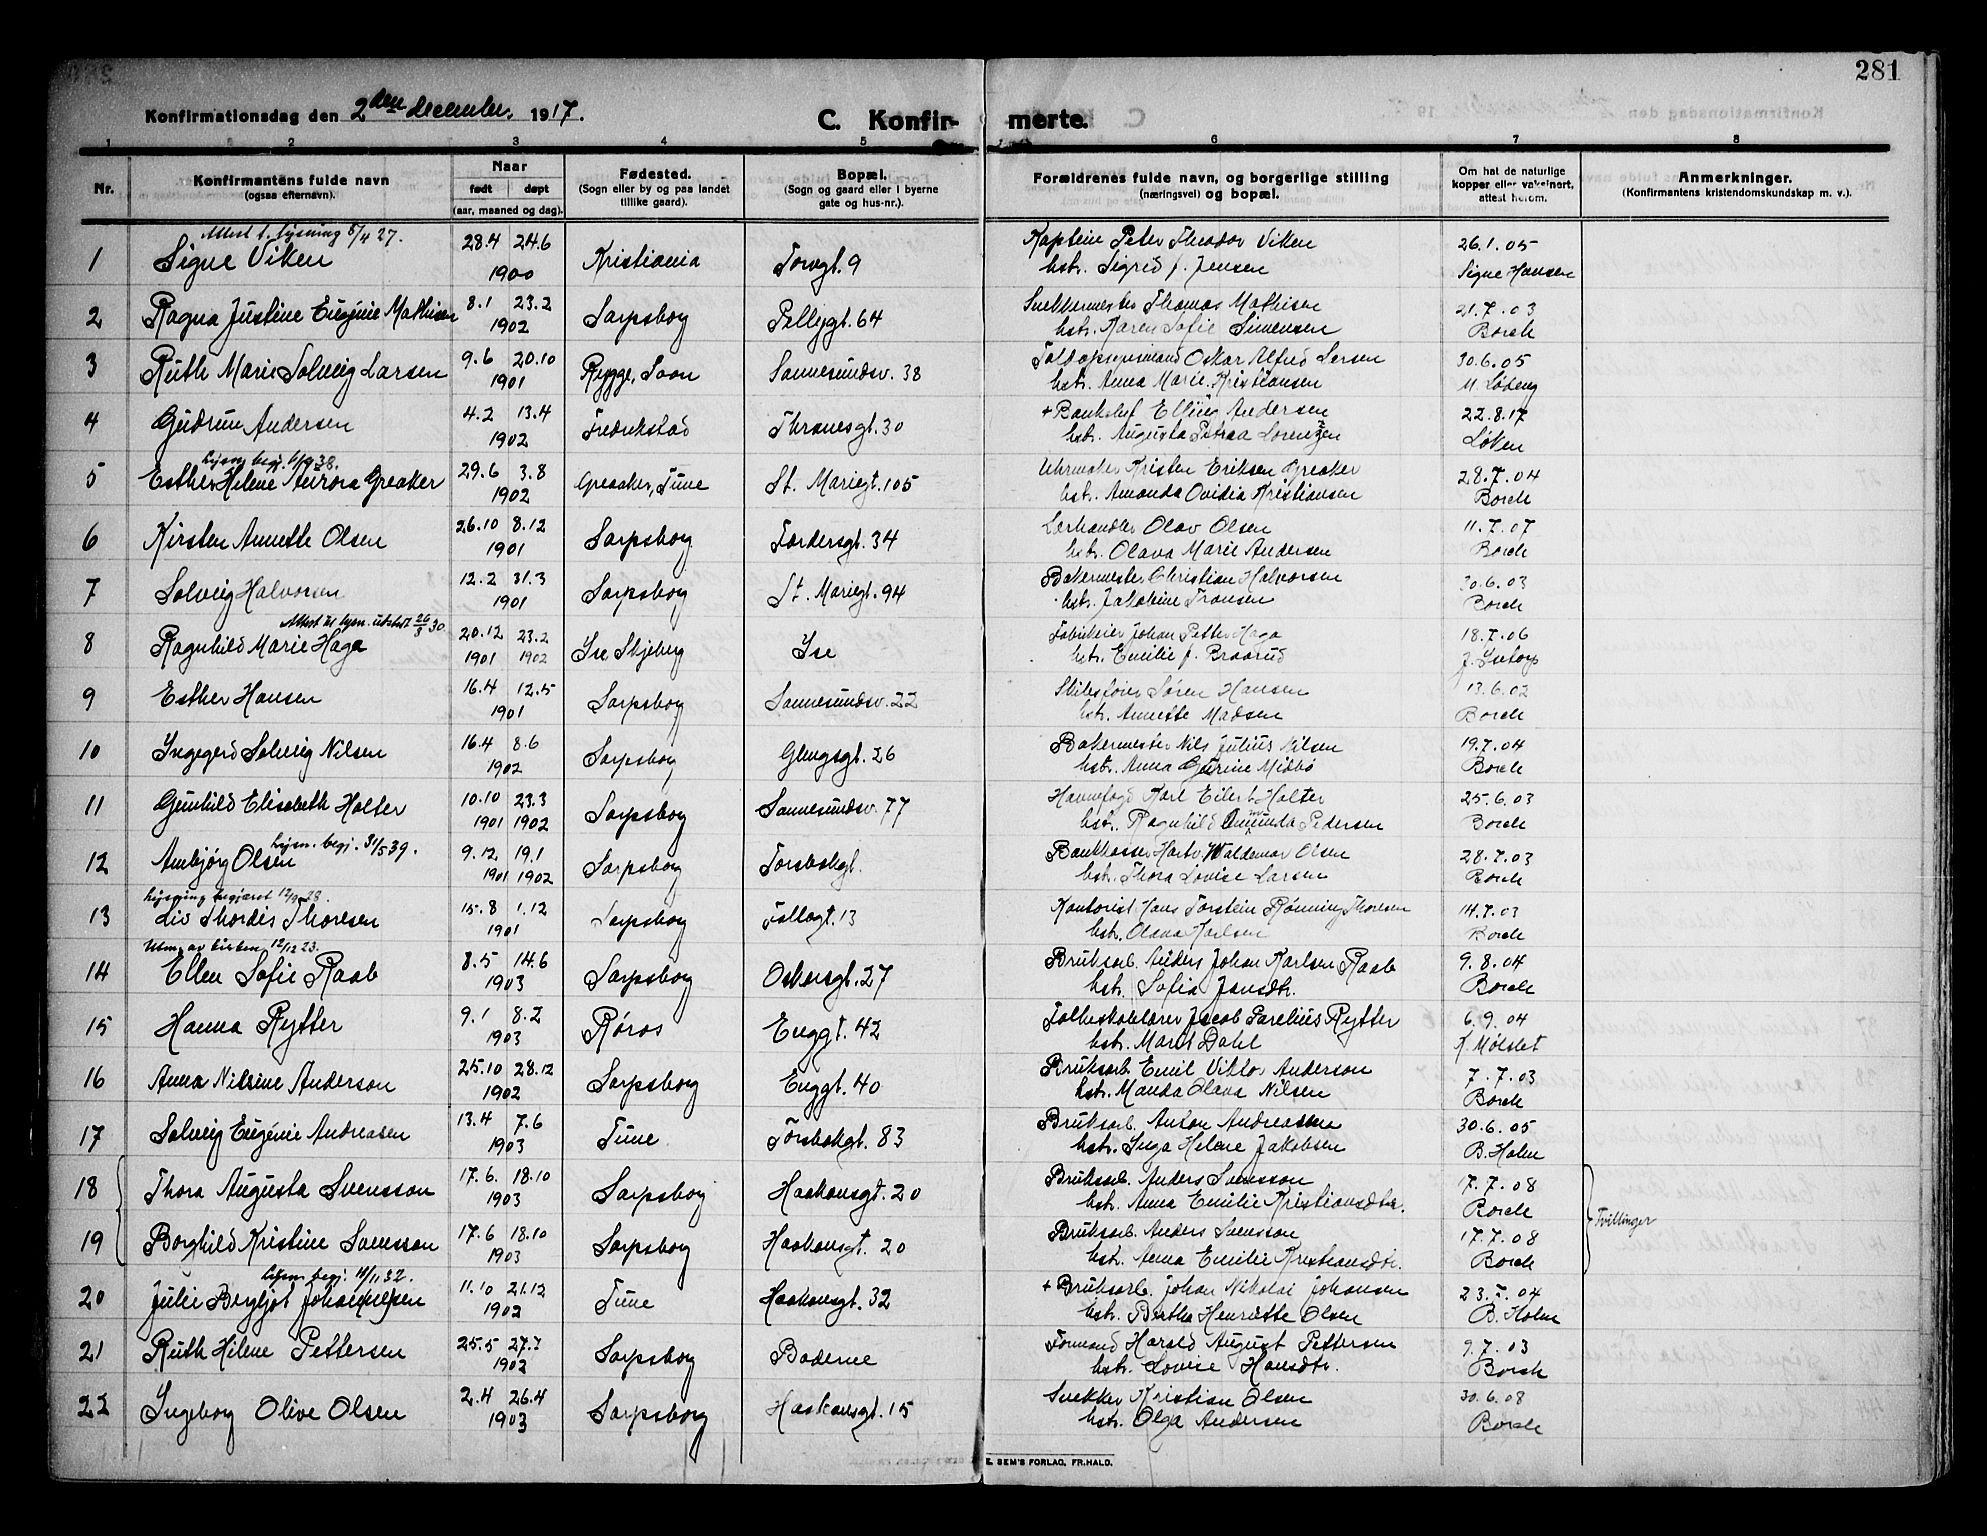 281
Konfirmationsdag den 2den december. 1917.
C. Konfir- merte.
1 2 3 4 5 6 7 8
Nr.
Konfirmantens fulde navn
(ogsaa efternavn).
Naar
født døpt
(aar, maaned og dag).
Fødested.
(Sogn eller by og paa landet
tillike gaard).
Bopæl.
(Sogn og gaard eller i byerne
gate og hus-nr.).
Forældrenes fulde navn, og borgerlige stilling
(næringsvei) og bopæl.
Om hat de naturlige
kopper eller vaksinert,
attest herom.
Anmerkninger.
(Konfirmantens kristendomskundskap m. v.).
Attest t. lysning 5/4 27.
1 Signe Viken 28.4 24.6 Kristiania Torvgt. 9 Kaptein Peter Theodor Viken 26.1.05
1900 hstr. Sigrid f. Jensen Signe Hansen
2 Ragna Justine Eugénie Mathisen 8.1 23.2 Sarpsborg Pellygt. 64 Snekkermester Thomas Mathisen 21.7.03
1902 hstr. Karen Sofie Simensen Borch
3 Ruth Marie Solveig Larsen 9.6 20.10 Rygge, Soon Sannesundsv. 38 Toldopsynsmand Oskar Alfred Larsen 30.6.05
1901 hstr. Anna Marie Kristiansen M Løberg
4 Gudrun Andersen 4.2 13.4 Fredrikstad Thranesgt. 30 + Bankchef Elling Andersen 22.8.17
1902 hstr. Augusta Petrea Lorenzen Løken
Lysn. begj. 1/9 38.
5 Esther Helene Aurora Greaker 29.6 3.8 Greaaker, Tune St. Mariegt. 105 Uhrmaker Kristen Eriksen Greaker 28.7.04
1902 hstr. Amanda Ovidia Kristiansen Borch
6 Kirsten Annette Olsen 26.10 8.12 Sarpsborg Tordersgt. 34 Lærhandler Olav Olsen 11.7.07
1901 hstr. Olava Marie Andersen Borch
7 Solveig Halvorsen 12.2 31.3 Sarpsborg St. Mariegt. 94 Bakermester Christian Halvorsen 30.6.03
1901 hstr. Jakobine Fransen Borch
Attest til lysn. utstedt 26/3 30
8 Ragnhild Marie Haga 20.12 23.2 Ise Skjeberg Ise Fabrikeier Johan Petter Haga 18.7.06
1901 1902 hstr. Emilie f. Braarud
9 Esther Hansen 16.4 12.5 Sarpsborg Sannesundsv. 22 Skibsfører Søren Hansen 13.6.02
1901 hstr. Annette Madsen Borch
10 Ingegerd Solveig Nilsen 16.4 8.6 Sarpsborg Glengsgt. 26 Bakermester Nils Julius Nilsen 19.7.04
1902 hstr. Anna Gurine Midbö Borch
11 Gunhild Elisabeth Holter 10.10 23.3 Sarpsborg Sannesundsv. 77 Havnefogd Karl Eilert Holter 25.6.03
1901 1902 hstr. Ragnhild Amunda Pedersen Borch
Lysn. begj. 31/5 39.
12 Annbjørg Olsen 9.12 19.1 Sarpsborg Torsbekgt. Bankkasser Hartv. Waldemar Olsen 28.7.03
1901 1902 hstr. Thora Lovise Larsen Borch
Lysning begjæret 12/9 28.
13 Liv Thordis Thoresen 15.8 1.12 Sarpsborg Follogt. 13 Kontorist Hans Torstein Rønning Thoresen 14.7.03
1901 hstr. Olava Karlsen Borch
Utm. av kirken 12/12 23.
14 Ellen Sofie Raab 8.5 14.6 Sarpsborg Oskarsgt. 27 Bruksarb. Anders Johan Karlsen Raab 9.8.04
1903 hstr. Sofia Jansdtr. Borch
15 Hanna Rytter 9.1 8.2 Røros Enggt. 42 Folkeskolelærer Jacob Parelius Rytter 6.9.04
1903 hstr. Marit Dahl K. Mølslet
16 Anna Nilsine Anderson 25.10 28.12 Sarpsborg Enggt. 40 Bruksarb. Emil Viktor Anderson 7.7.03
1902 hstr. Manda Olava Nilsen Borch
17 Solveig Eugénie Andreasen 13.4 7.6 Tune Torsbekgt. 83 Bruksarb. Anton Andreassen 30.6.05
1903 hstr. Inga Helene Jakobsen B. Holm
18 Thora Augusta Svensson 17.6. 18.10 Sarpsborg Haakonsgt. 20 Bruksarb. Anders Svensson 17.7.08
1903 hstr. Anna Emilie Kristiansdtr. Borch
Tvillinger
19 Borghild Kristine Svensson 17.6 18.10 Sarpsborg Haakonsgt. 20 Bruksarb. Anders Svensson 17.7.08
1903 hstr. Anna Emilie Kristiansdtr. Borch
Lysn. begj. 11/11 32.
20 Julie Bergljot Johannessen 11.10 21.12 Tune Haakonsgt. 32 + Bruksarb. Johan Nikolai Johansen 23.7.04
1902 hstr. Bertha Henriette Olsen B. Holm
21 Ruth Helene Pettersen 25.5 27.7 Sarpsborg Baderne Formand Harald August Pettersen 9.7.03
1902 hstr. Lovise Hansdtr. Borch
22 Ingeborg Olive Olsen 2.4 26.4 Sarpsborg Haakonsgt. 15 Snekker Kristian Olsen 30.6.08
1903 hstr. Olga Andersen Borch
E. SEM'S FORLAG, FR.HALD.